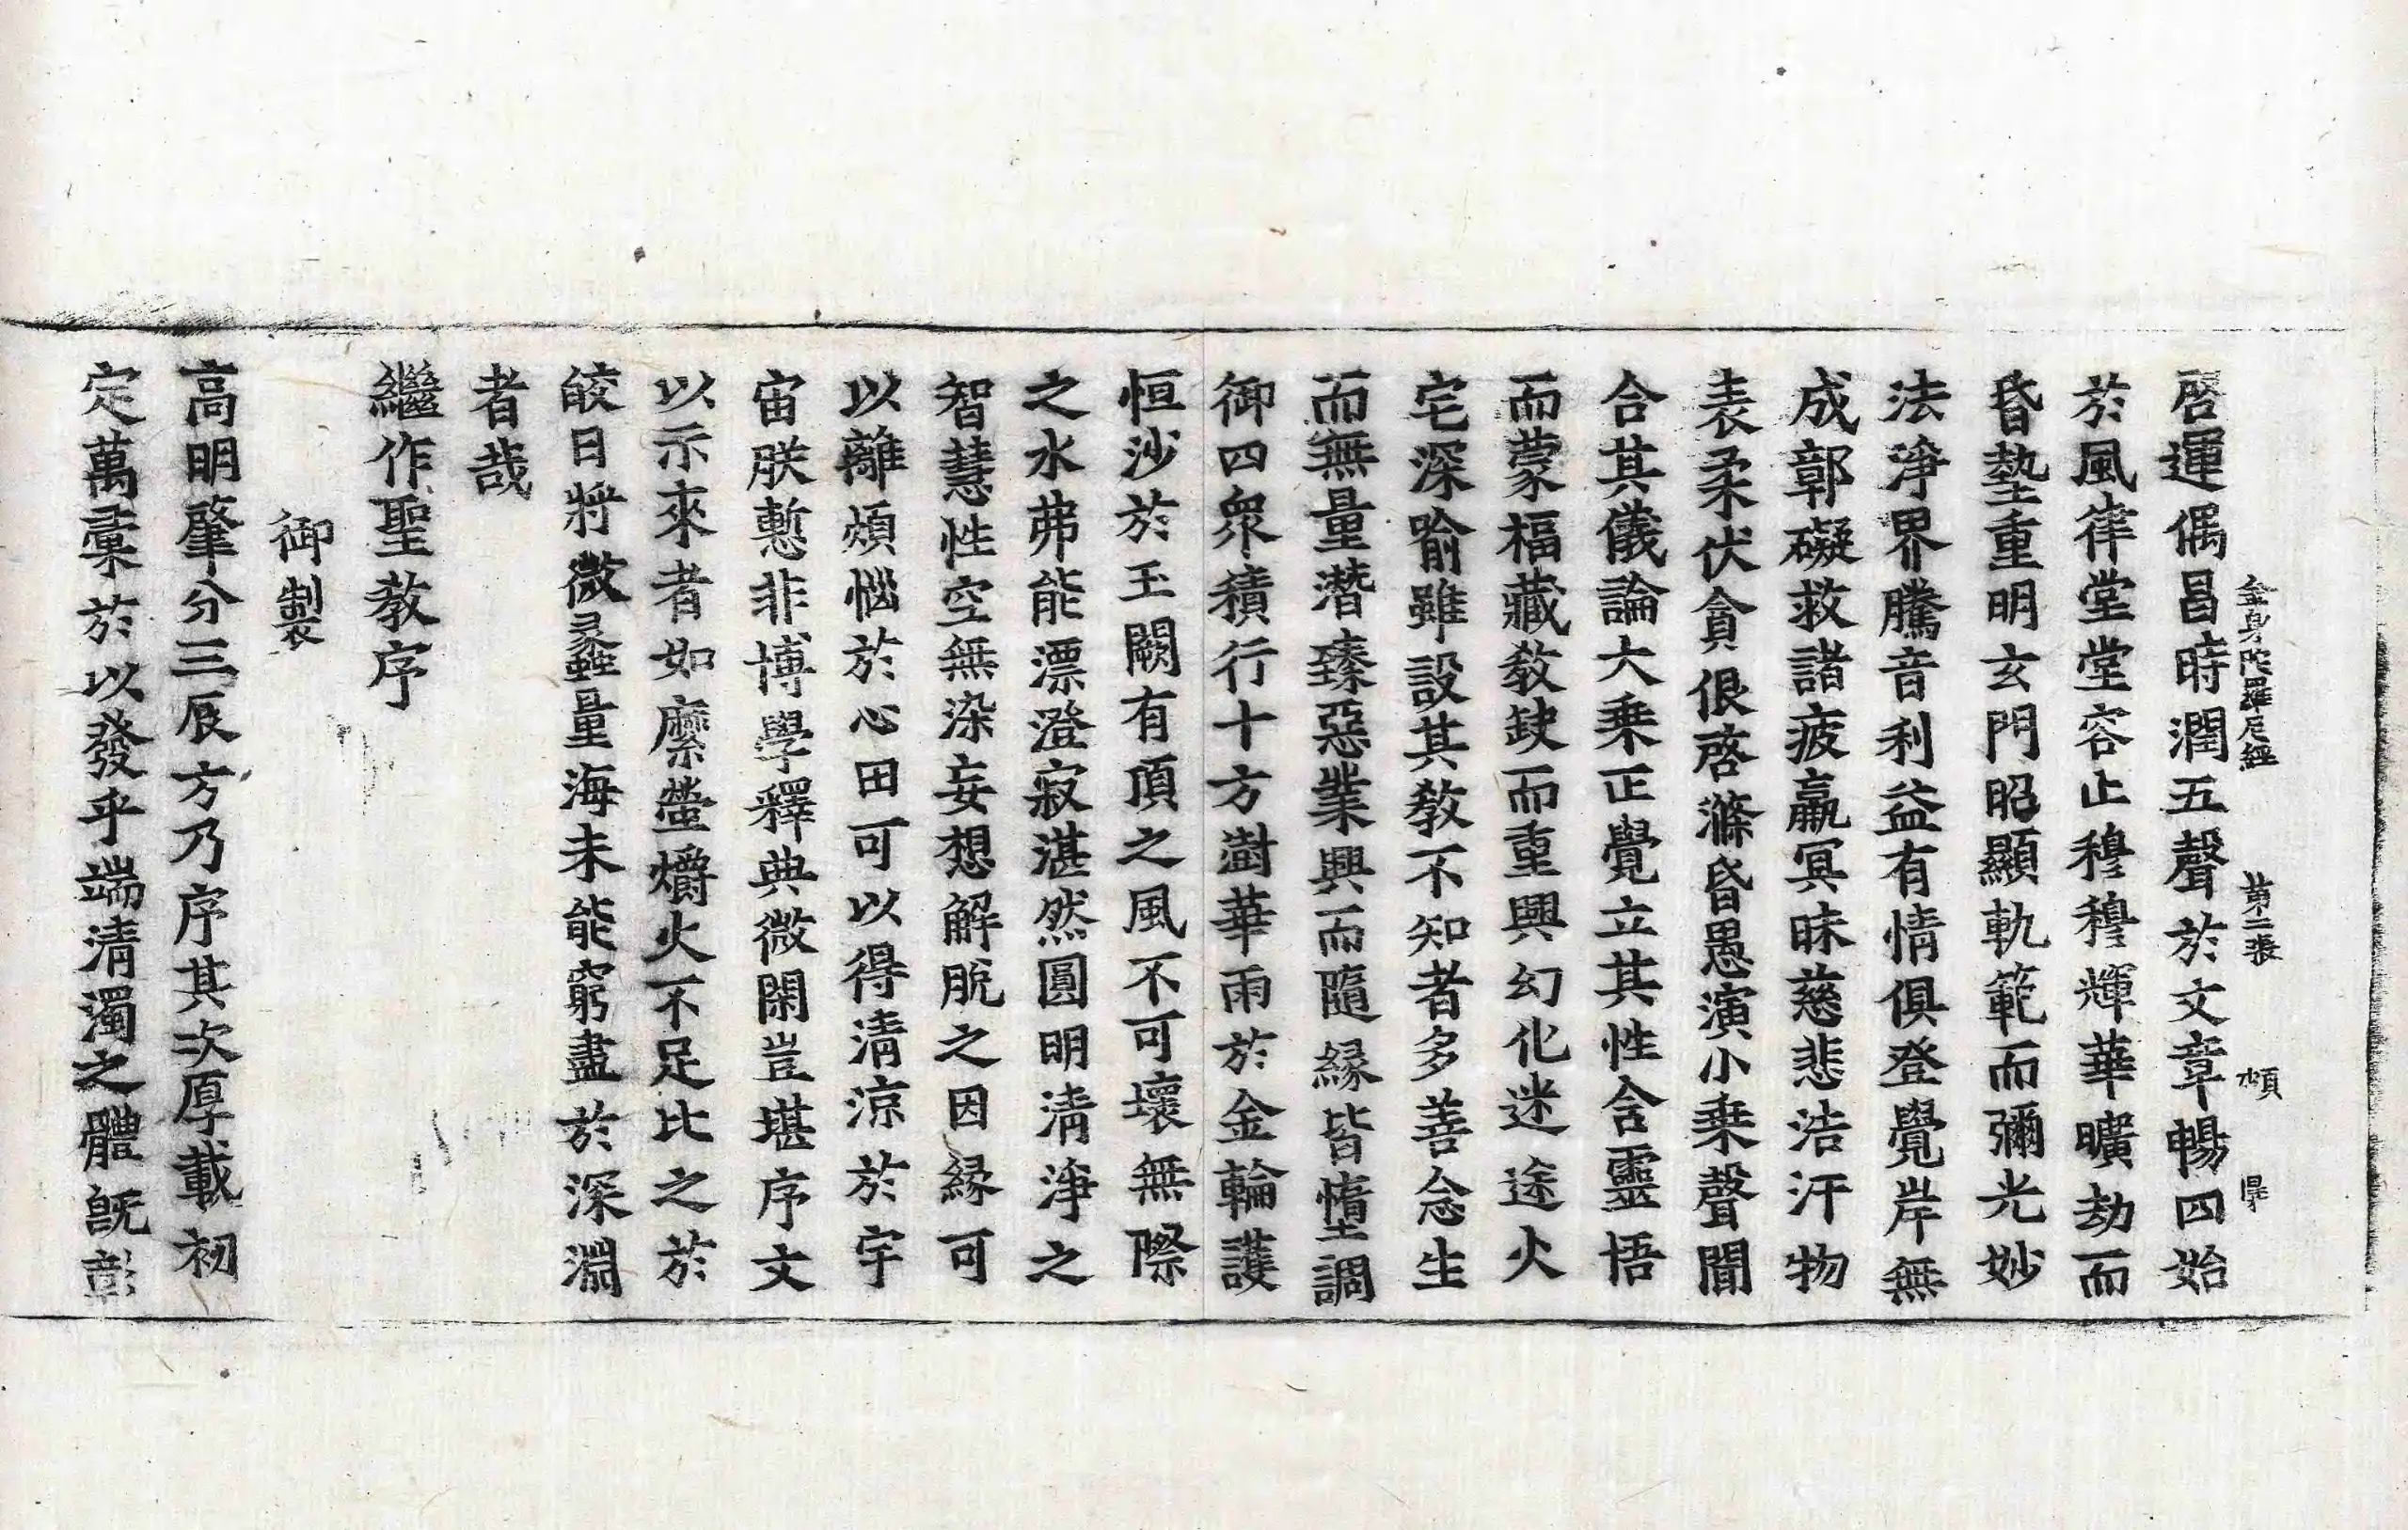 金身陀羅尼經 第二張 傾 㝵
啓運偶昌時潤五聲於文章暢四始
於風律堂堂容止穆穆輝華曠劫而
昏墊重明玄門昭顯軌範而彌光妙
法淨界騰音利益有情俱登覺岸無
成鄣礙救諸疲羸冥昧慈悲浩汗物
表柔伏貪很啓滌昏愚演小乗聲聞
合其儀論大乗正覺立其性含靈悟
而蒙福藏教缺而重興幻化迷途火
宅深喻雖設其教不知者多善念生
而無量潛臻惡業興而隨緣皆墮調
御四衆積行十方澍華雨於金輪護
恒沙於玉闕有頂之風不可壞無際
之水弗能漂澄寂湛然圓明清淨之
智慧性空無染妄想解脫之因緣可
以離煩惱於心田可以得清涼於宇
宙朕慙非博學釋典微閑豈堪序文
以示來者如縻螢爝火不足比之於
皎日將微蠡量海未能窮盡於深淵
者哉
繼作聖教序
御製
高明肇分三辰方乃序其次厚載初
定萬彙於以發乎端清濁之體旣彰